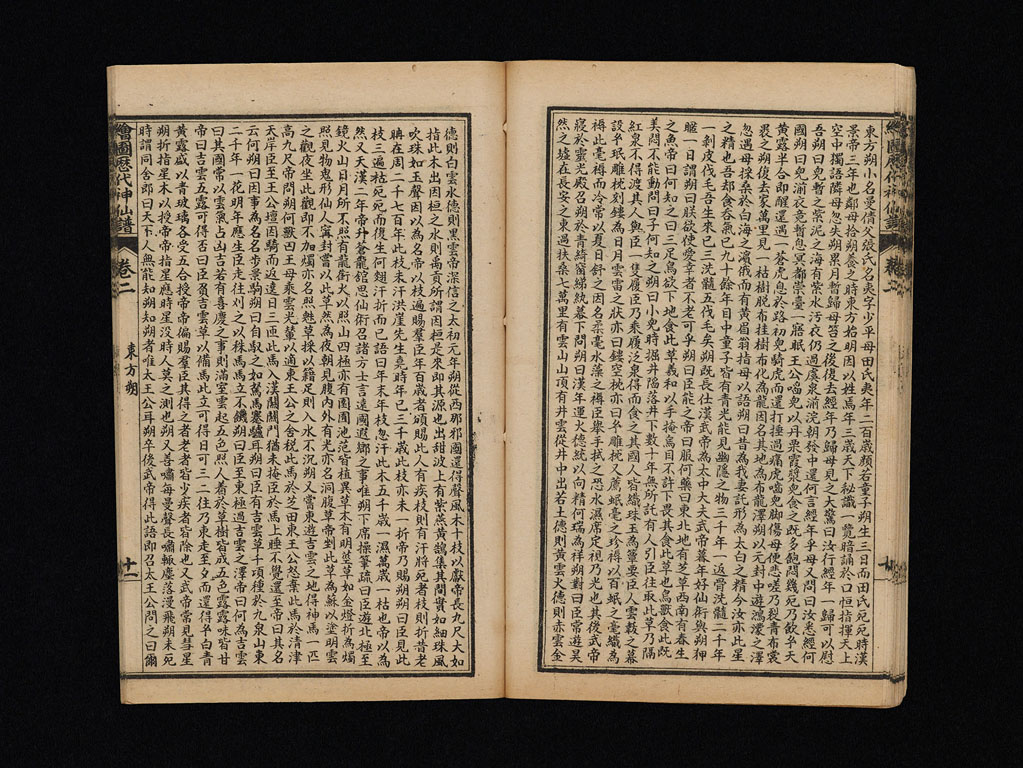 東方朔小名曼倩父張氏名夷字少平母田氏夷年二百歲顏若童子朔生三日而田氏死死時漢
景帝三年也鄰母拾朔養之時東方始明因以姓焉年三歲天下秘識一覽暗誦於口恒指揮天上
空中獨語鄰母忽失朔累月暫歸母笞之後復去經年乃歸母見之大驚曰汝行經年一歸可以慰
吾朔曰兒暫之紫泥之海有紫水污衣仍過虞泉湔浣朝發中還何言經年乎母又問曰汝悉經何
國朔曰兒湔衣竟暫息冥都崇臺一寤眠王公啗兒以丹栗霞漿兒食之既多飽悶幾死乃飲乎天
黃露半合即醒還遇一蒼虎息於路初兒騎虎而還打捶過痛虎嚙兒脚傷母便悲嗟乃裂青布裳
裹之朔復去家萬里見一枯樹脫布挂樹布化為龍因名其地為布龍澤朔以元封中遊鴻濛之澤
忽遇母採桑於白海之濱俄而有黃眉翁指母以語朔曰昔為我妻託形為太白之精今汝亦此星
之精也吾却食吞氣已九十餘年目中童子皆有青光能見幽隱之物三千年一返骨洗髓二千年
一剝皮伐毛吾生來已三洗髓五伐毛矣朔既長仕漢武帝為太中大夫武帝暮年好仙術與朔狎
暱一日謂朔曰朕欲使愛幸者不老可乎朔曰臣能之帝曰服何藥曰東北地有芝草西南有春生
之魚帝曰何知之曰三足烏欲下地食此草羲和以手掩烏目不許下畏其食此草也鳥獸食此既
美悶不能動問曰子何知之朔曰小兒時掘井陷落井下數十年無所託有人引臣往取此草乃隔
紅泉不得渡其人與臣一隻履臣乃乘履泛泉得而食之其國人皆織珠玉為簟要臣入雲韍之幕
設乎珉雕枕刻鏤為日月雲雷之狀亦曰鏤空枕亦曰乎雕枕又薦岷毫之珍褥以百岷之毫織為
褥此毫褥而冷常以夏日舒之因名柔毫水藻之褥臣舉手拭之恐水濕席定視乃光也其後武帝
寢於靈光殿召朔於青綺窗綈紈幕下問朔曰漢年運火德統以何精何瑞為祥朔對曰臣常遊昊
然之墟在長安之東過扶桑七萬里有雲山山頂有井雲從井中出若土德則黃雲火德則赤雲金
德則白雲水德則黑雲帝深信之太初元年朔從西那邪國還得聲風木十枝以獻帝長九尺大如
指此木出因桓之水則禹貢所謂因桓是來即其源也出甜波上有紫燕黃鵠集其間實如細珠風
吹珠如玉聲因以為名帝以枝遍賜羣臣年百歲者頒賜此人有疾枝則有汗將死者枝則折昔老
聃在周二千七百年此枝未汗洪崖先生堯時年已三千歲此枝亦未一折帝乃賜朔朔曰臣見此
枝三遍枯死死而復生何翅汗折而已語曰年末年枝忽汗此木五千歲一濕萬歲一枯也帝以為
然又天漢二年帝升蒼龍館思仙術召諸方士言遠國遐鄉之事唯朔下席操筆疏曰臣遊北極至
鏡火山日月所不照有龍銜火以照山四極亦有園囿池苑皆植異草木有明莖草如金燈折為燭
照見物鬼形仙人甯封嘗以此草然為夜朝見腹內外有光亦名洞腹草帝剉此草為蘇以塗明雲
之觀夜坐此觀即不加燭亦名照魅草採以籍足則入水不沉朔又嘗東遊吉雲之地得神馬一匹
高九尺帝問朔何獸曰王母乘雲光輦以適東王公之舍稅此馬於芝田東王公怒棄此馬於清津
天岸臣至王公壇因騎而返遶日三匝此馬入漢關關門猶未掩臣於馬上睡不覺還至帝曰其名
云何朔曰因事為名名步景駒朔曰自馭之如駑馬蹇驢耳朔曰臣有吉雲草千頃種於九泉山東
二千年一花明年應生臣走往刈之以秣馬馬立不饑朔曰臣至東極過吉雲之澤帝曰何為吉雲
曰其國常以雲氣占凶吉若有喜慶之事則滿室雲起五色照人着於草樹皆成五色露露味皆甘
帝曰吉雲五露可得否曰臣負吉雲草以備馬此立可得日可三二往乃東走至夕而還得乎白青
黃露盛以青玻璃各受五合授帝帝偏賜羣臣其得之者老者皆少疾者皆除也又武帝常見彗星
朔折指星木以授帝帝指星應時星沒時人莫之測也朔又善嘯每曼聲長嘯輒塵落漫飛朔未死
時謂同舍郎曰天下人無能知朔知朔者唯太王公耳朔卒後武帝得此語即召太王公問之曰爾
繪圖歷代神仙譜
卷二
東方朔
十一